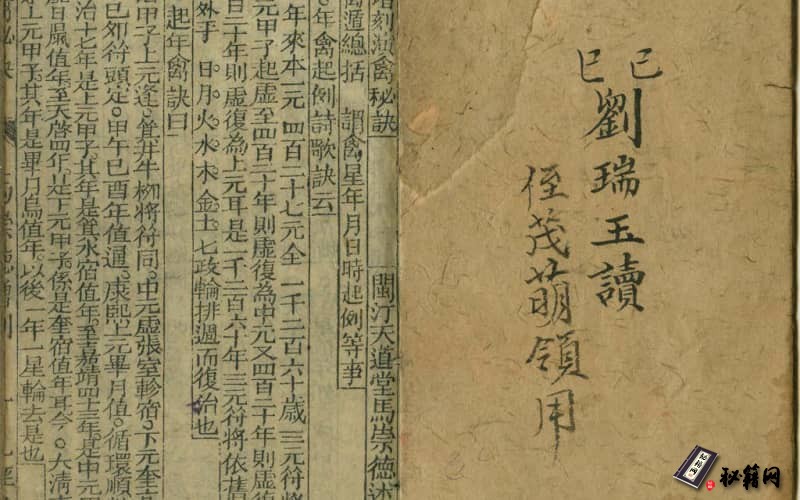 己巳
劉瑞玉讀
侄茂萌領用
增刻演禽秘訣 閩汀天道堂馬崇德述
禽遁總括 謂禽星年月日時起例等事
年禽起例詩歌訣云
年來本一元 四百二十七元全 一千二百六十歲 三元符將
元甲子起虛至四百二十年則虛復為中元又四百二十年則虛復
百二十年則虛復為上元耳是一千二百六十年三元符將依舊
外乎 日月火水木金土七政輪排週而復始也
起年禽訣曰
甲子上元逢箕井牛柳將符同中元虛張室軫宿下元奎
已夘符頭定。甲午已酉年值通。康熙上元畢月值。循環順
治十七年是上元甲子其年是箕水宿值年至嘉靖四十三年是中元
日鼠值年至天啓四年是下元甲子係是奎宿值年耳今。大清
上元甲子其年是畢月烏值年以後一年一星輪去是也
秘籍网